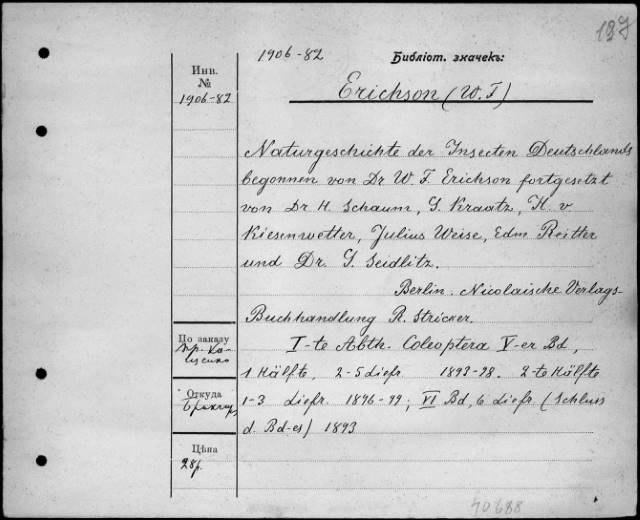 1906-82 Библіот. значекъ:
Инв.
№
1906-82
Erichson (W. F)
Naturgeschichte der Insecten Deutschlands
begonnen von Dr W. F. Erichson fortgesetzt
von Dr. H. Schaum, G. Kraatz, H. v
Kiesenwetter, Julius Weise, Edm Reitter
und Dr. G. Seidlitz.
Berlin. Nicolaische Verlags-
Buchhandlung R. Stricker.
I-te Abth. Coleoptera V-er Bd,
1 Hälfte, 2-5 Liefr 1893-98. 2-te Hälfte
1-3 Liefr. 1896-99; VI Bd, 6 Liefr (Schluss
d. Bd-es) 1893
По заказу
Откуда
Цѣна
28р.
70688